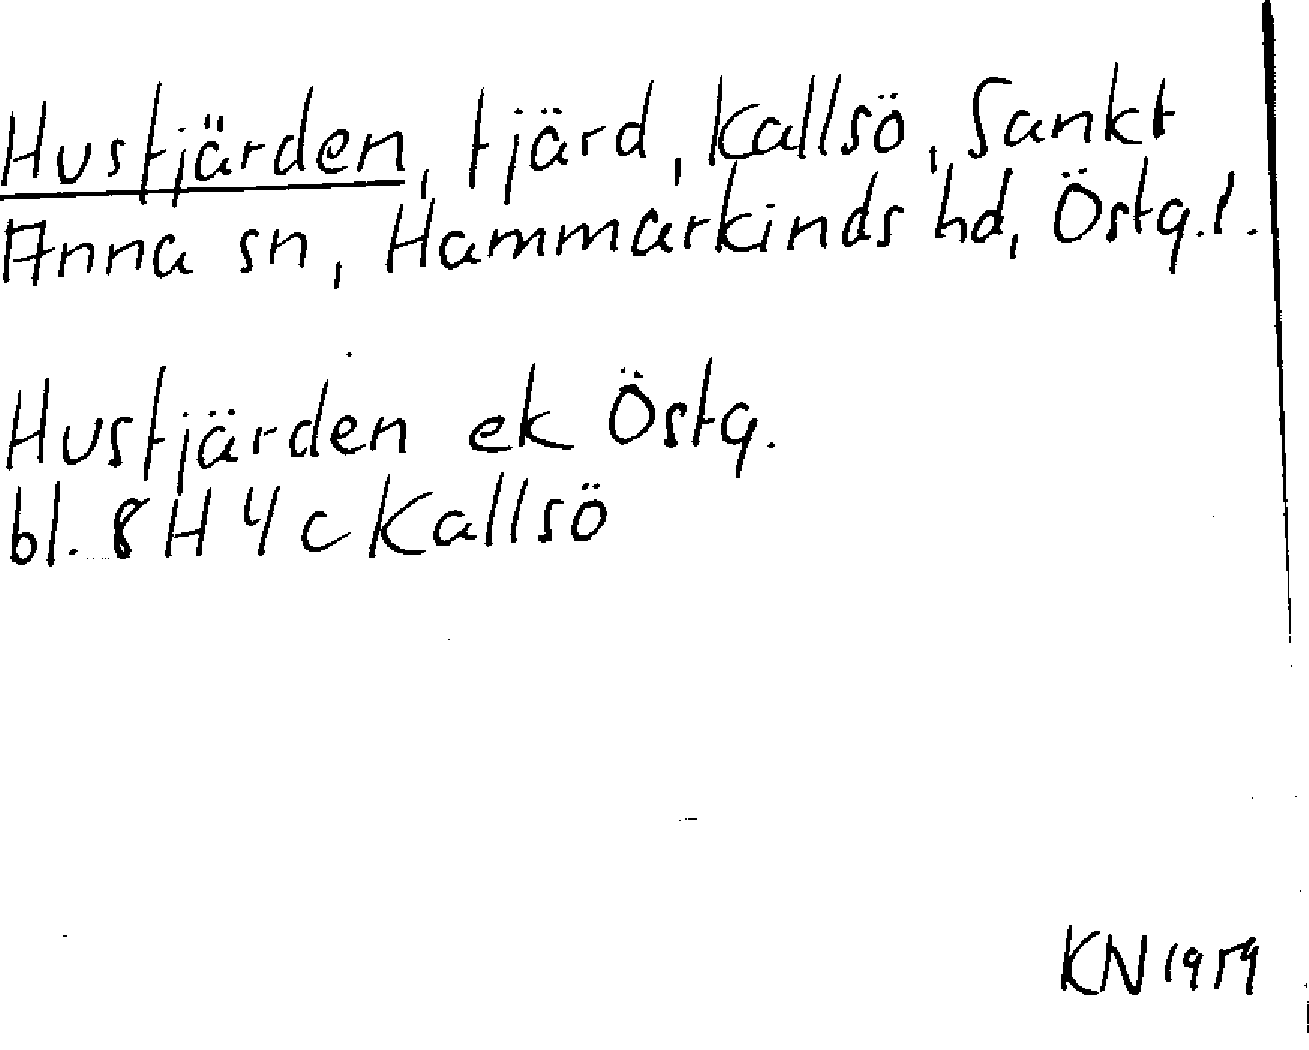 Husfjärden, fjärd, Kallsö, Sankt
Anna sn, Hammarkinds hd, Östg.l.
Husfjärden ek Östg.
bl. 8H 4c Kallsö
KN 1959